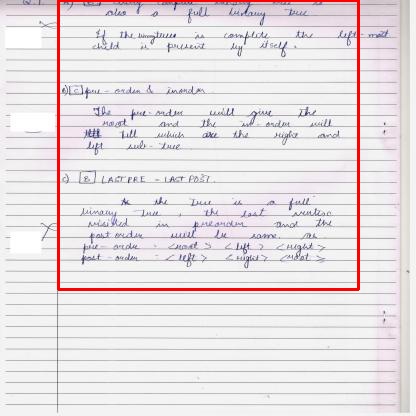 also a full binary tree.
If the binarytree is complete the left-most
child is present by itself.
b) [C] pre-order & inorder
The pre-order will give the
root and the in-order will
tell which are the right and
left sub-tree.
c) [B] LAST PRE - LAST POST.
the tree is a full
binary tree, the last vertex
visited in preorder and the
post order will be same. as
pre-order = <root> <left> <right>
post-order = <left> <right> <root>